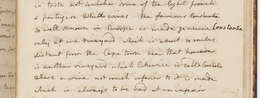 in taste not unlike some of the light french
& portugese White wines. The famous Constantia
so well known in Europe is made genuine
only at one vineyard which is about 10 miles
distant from the Cape town near that however
is another vineyard which likewise is calld Constantia
where a wine not much inferior to it is made
which is always to be had at an inferior